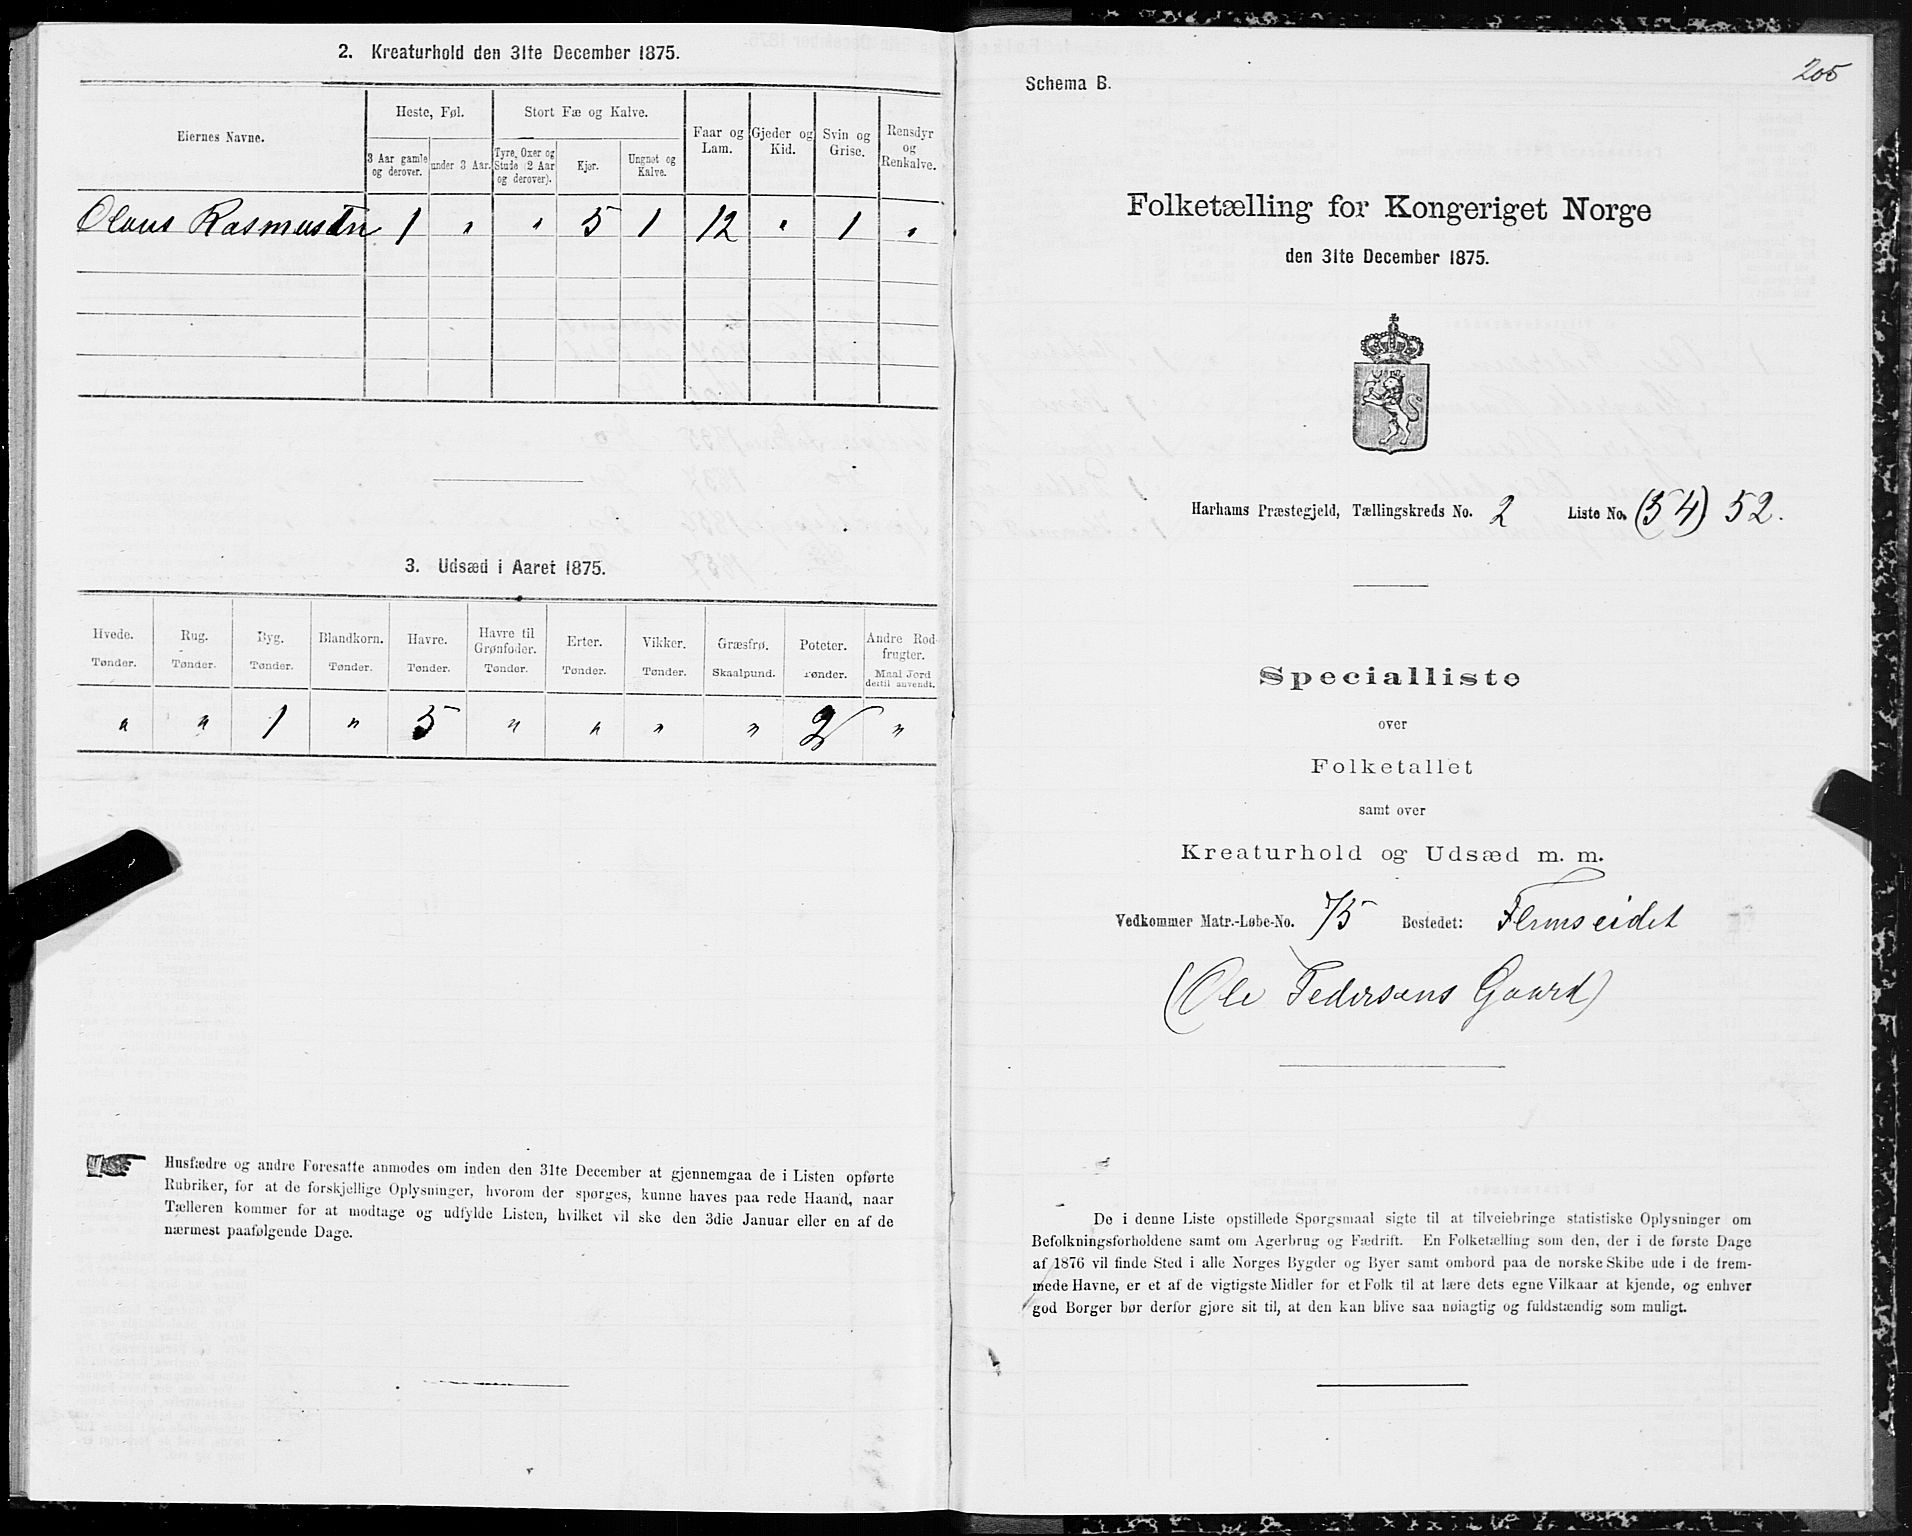 2. Kreaturhold den 31te December 1875.
Eiernes Navne.
Heste, Føl.
Stort Fæ og Kalve.
Faar og Lam.
Gjeder og Kid.
Svin og Grise.
Rensdyr og Renkalve.
3 Aar gamle og derover.
under 3 Aar.
Tyre, Oxer og Stude (2 Aar og derover).
Kjør.
Ungnøt og Kalve.
Olaus Rasmussen 1 " " 5 1 12 " 1 "
3. Udsæd i Aaret 1875.
Hvede. Rug. Byg. Blandkorn. Havre. Havre til Grønfoder. Erter. Vikker. Græsfrø. Poteter. Andre Rodfrugter.
Tønder. Tønder. Tønder. Tønder. Tønder. Tønder. Tønder. Tønder. Skaalpund. Tønder. Maal Jord dertil anvendt.
" " 1 " 5 " " " " 2 "
Husfædre og andre Foresatte anmodes om inden den 31te December at gjennemgaa de i Listen opførte
Rubriker, for at de forskjellige Oplysninger, hvorom der spørges, kunne haves paa rede Haand, naar
Tælleren kommer for at modtage og udfylde Listen, hvilket vil ske den 3die Januar eller en af de
nærmest paafølgende Dage.
205
Schema B.
Folketælling for Kongeriget Norge
den 31te December 1875.
Harhams Præstegjeld, Tællingskreds No. 2 Liste No. (54) 52.
Specialliste
over
Folketallet
samt over
Kreaturhold og Udsæd m. m.
Vedkommer Matr.-Løbe-No. 75 Bostedet: Flemseidet
(Ole Pedersens Gaard)
De i denne Liste opstillede Spørgsmaal sigte til at tilveiebringe statistiske Oplysninger om
Befolkningsforholdene samt om Agerbrug og Fædrift. En Folketælling som den, der i de første Dage
af 1876 vil finde Sted i alle Norges Bygder og Byer samt ombord paa de norske Skibe ude i de frem-
mede Havne, er et af de vigtigste Midler for et Folk til at lære dets egne Vilkaar at kjende, og enhver
god Borger bør derfor gjøre sit til, at den kan blive saa nøiagtig og fuldstændig som muligt.